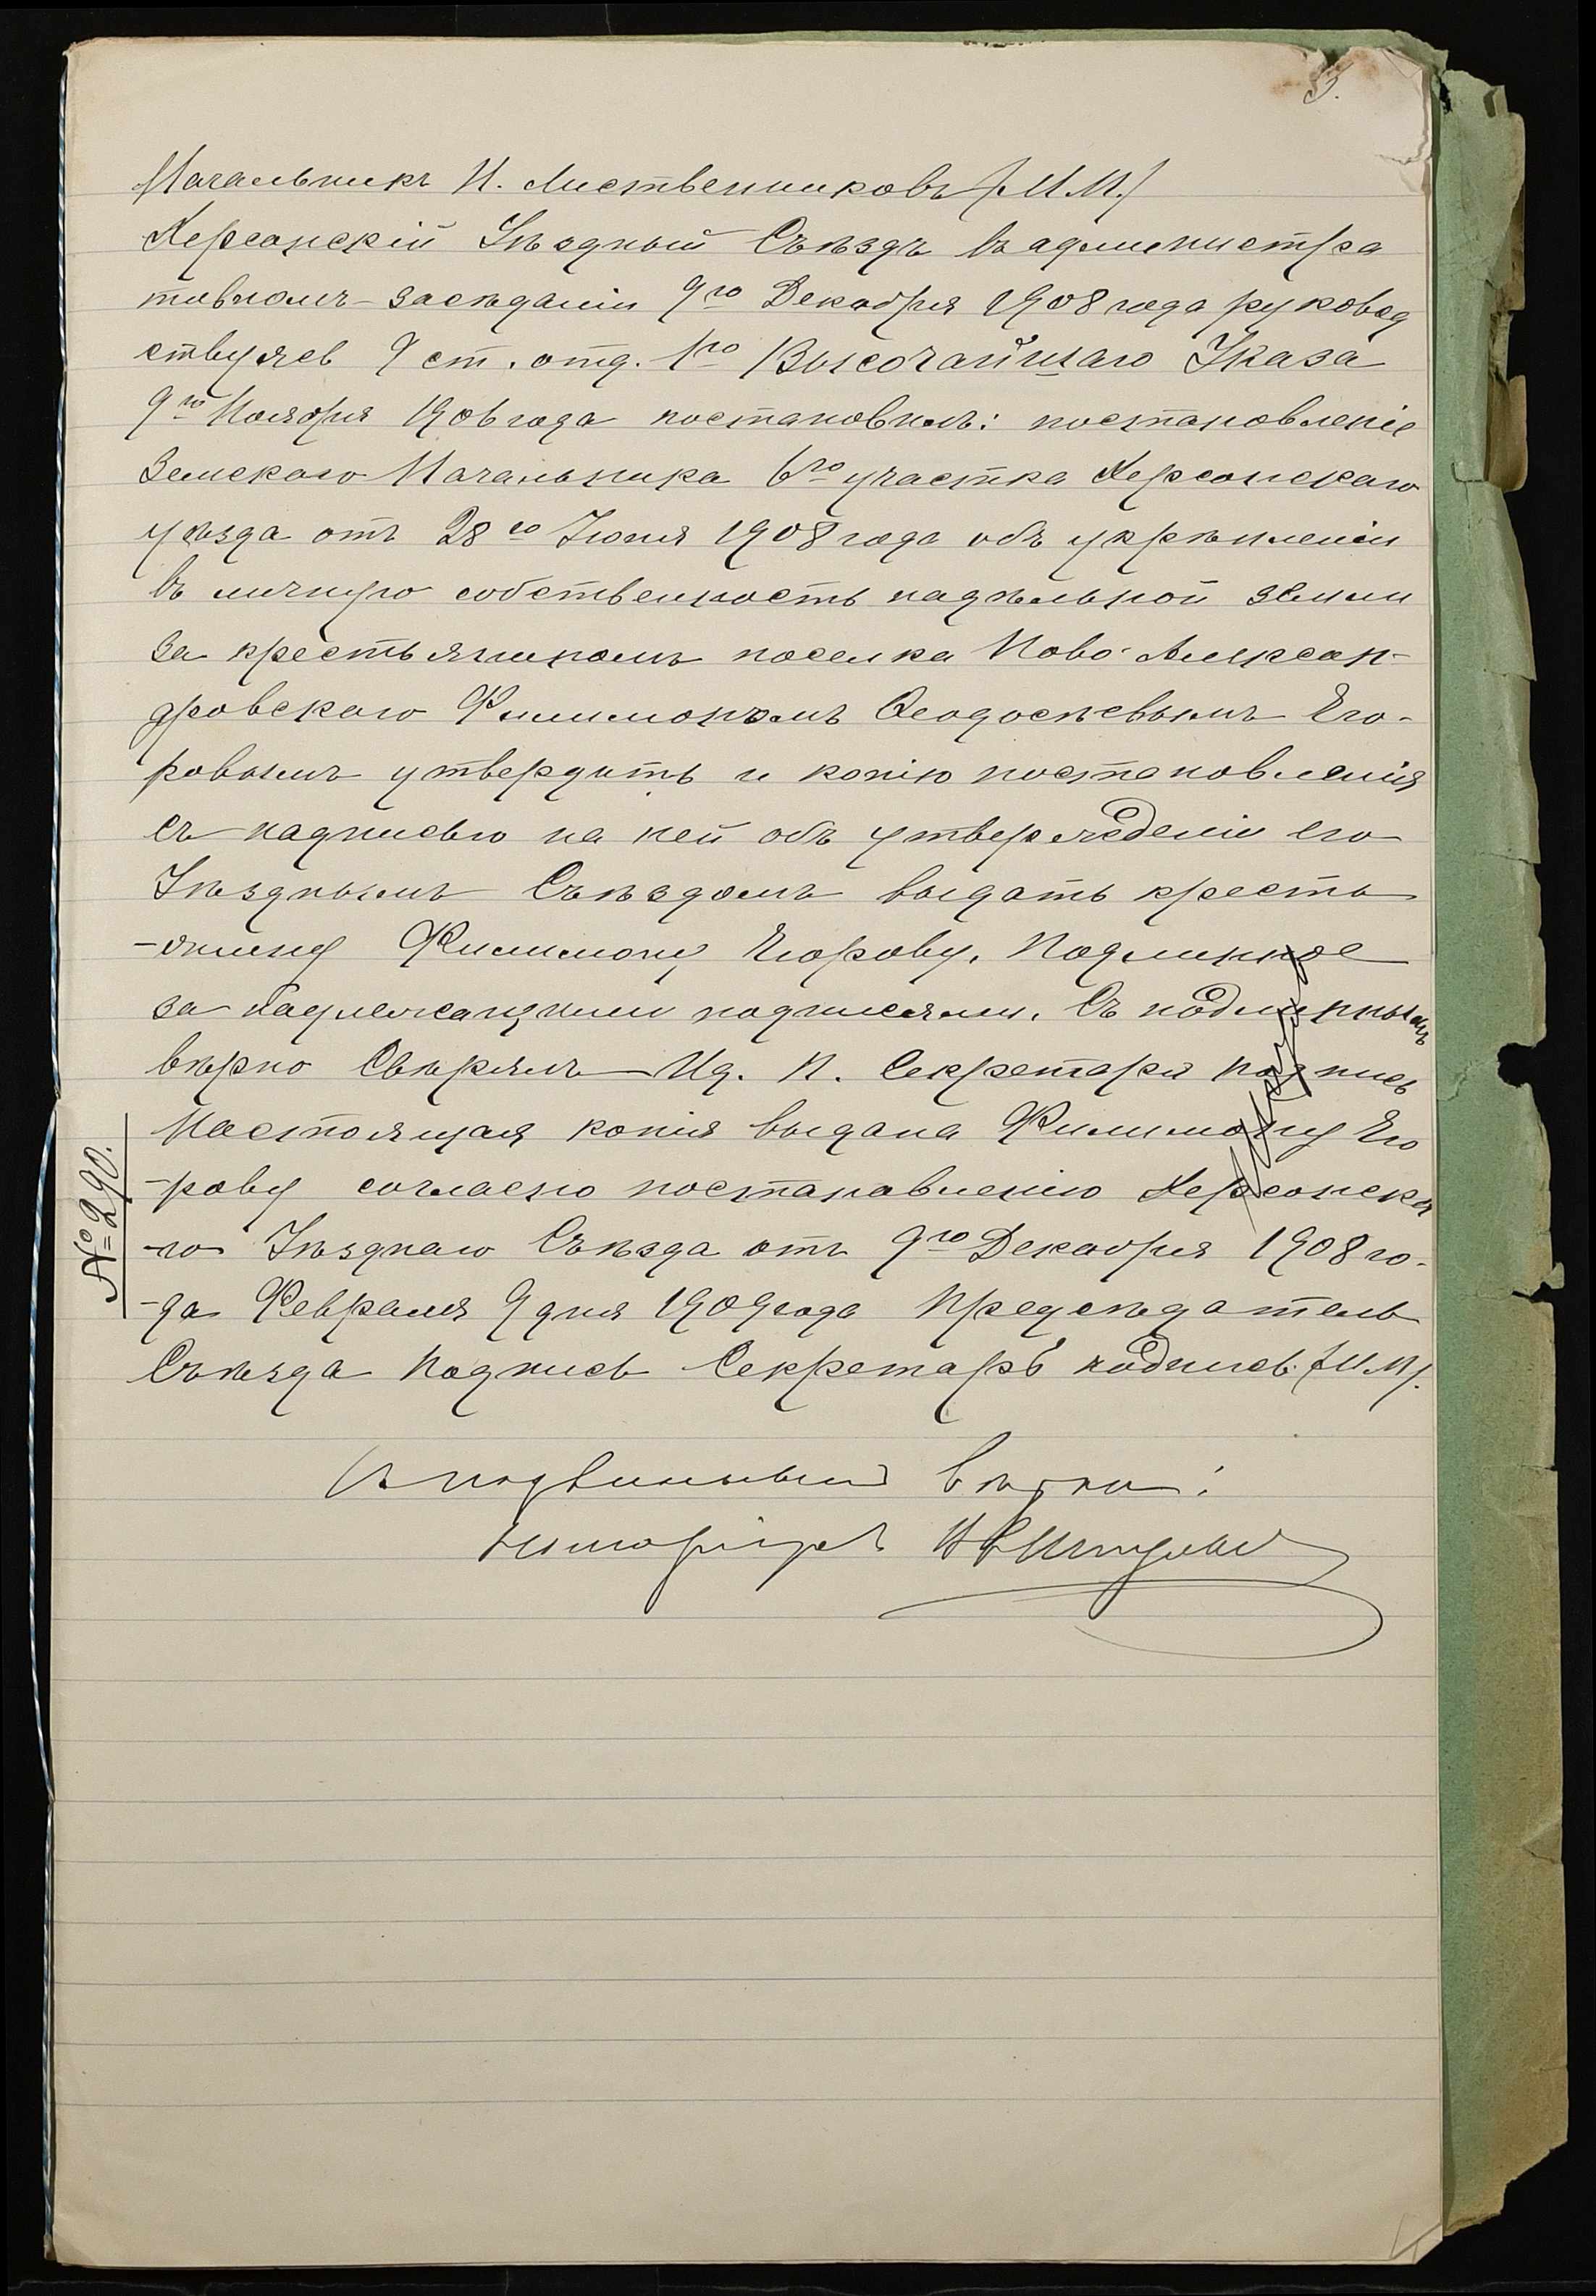 3.
Начальникъ И. Лиственниковъ /М.П./
Херсонскій Уѣздный Съѣздъ въ администра
тивномъ засѣданіи 9го Декабря 1908 года руковод
ствуясь 9 ст. отд. 1го Высочайшаго Указа
9го Ноября 1906 года постановилъ: постановленіе
Земскаго Начальника 6го участка Херсонскаго
уѣзда отъ 28го Іюня 1908 года объ укрѣпленіи
въ личную собственность надѣльной земли
за крестьяниномъ поселка Ново-Алексан-
дровскаго Филимономъ Ѳеодосѣевымъ Его-
ровымъ утвердить и копію постановленія
съ надписью на ней объ утвержденіи его
Уѣзднымъ Съѣздомъ выдать кресть
-янину Филимону Егорову. Подлинное
за надлежащими подписями. Съ подлиннымъ
вѣрно Свѣрялъ Ид. П. Секретаря подпись
Настоящая копія выдана Филимону Его
-рову согласно постановленію Херсонска
-го Уѣзднаго Съѣзда отъ 9го Декабря 1908 го-
-да Февраля 9 дня 1909 года Предсѣдатель
Съѣзда Подпись Секретарь подпись /М.П/.
№ 290.
Съ подлиннымъ вѣрно:
Нотаріусъ